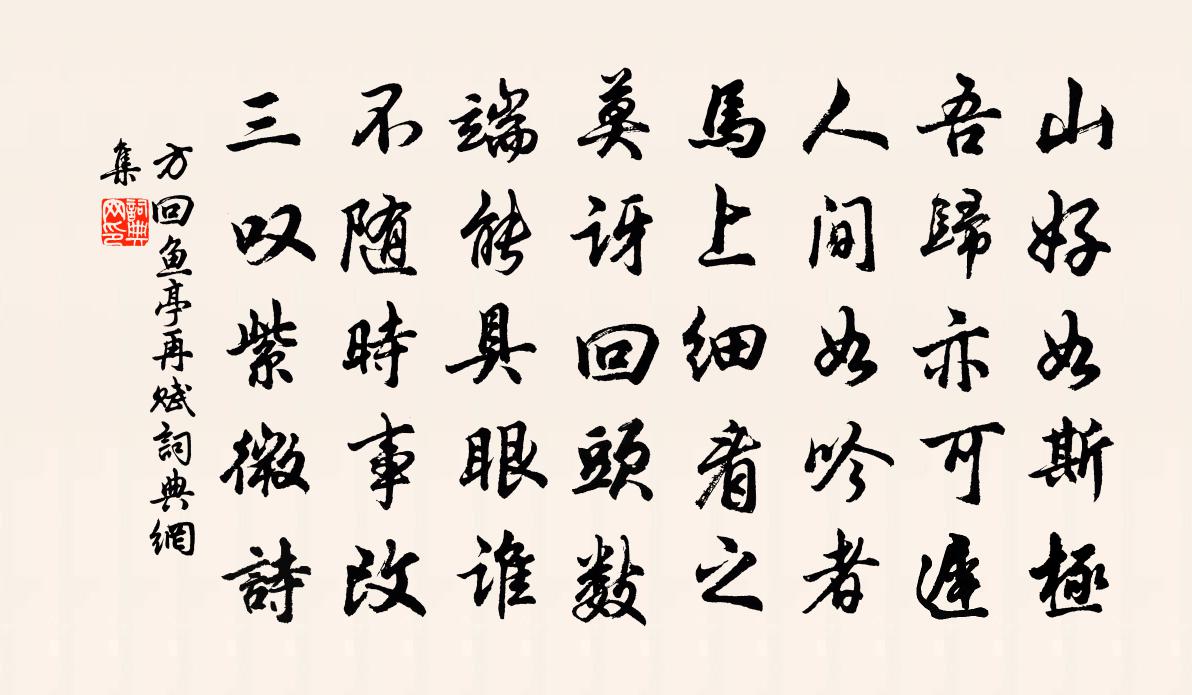 山好如斯極
吾歸亦可遲
人間如吟者
馬上细看之
莫讶回頭数
端能具眼誰
不随時事改
三叹紫微詩
方回鱼亭再赋詞典網
集
詞典
网印